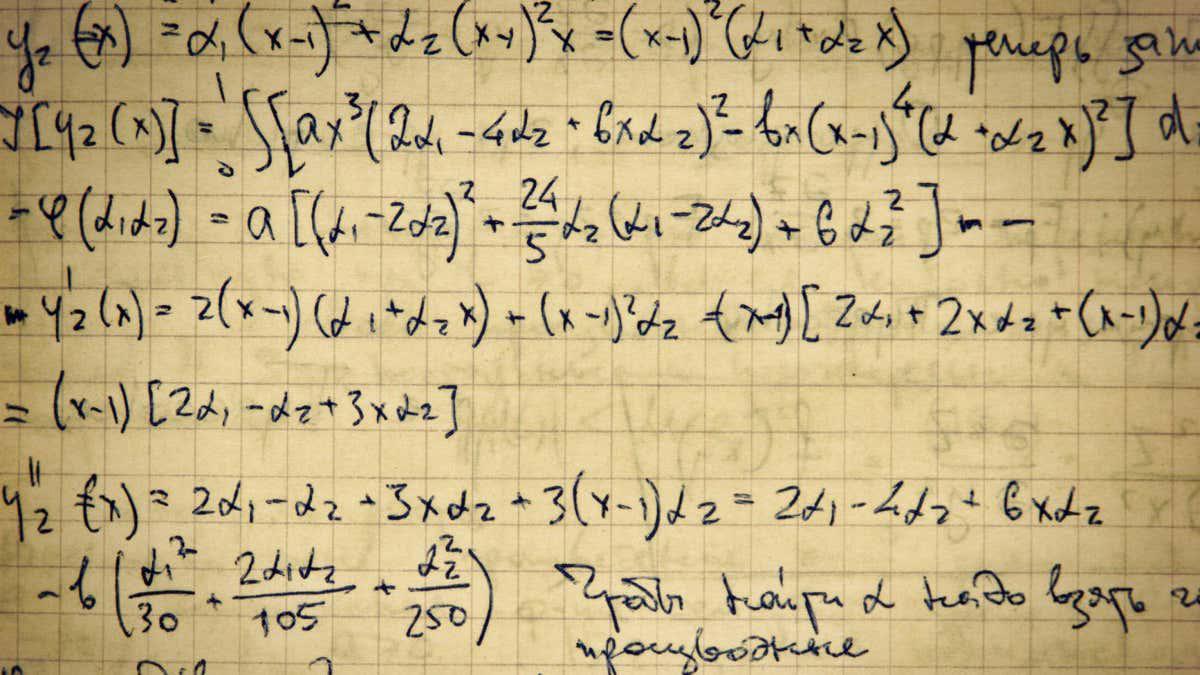 y₂(x) = α₁(x-1)² + α₂(x-1)²x = (x-1)²(α₁+α₂x) теперь
J[y₂(x)] = ∫₀¹[ax³(2α₁-4α₂+6xα₂)² - bx(x-1)⁴(α+α₂x)²]
= φ(α₁α₂) = a[(α₁-2α₂)² + 24/5 α₂(α₁-2α₂) + 6α₂²] - -
y₂'(x) = 2(x-1)(α₁+α₂x) + (x-1)²α₂ = (x-1)[2α₁+2xα₂+(x-1)α₂
= (x-1)[2α₁-α₂+3xα₂]
y₂''(x) = 2α₁-α₂+3xα₂+3(x-1)α₂ = 2α₁-4α₂+6xα₂
-b(α₁²/30 + 2α₁α₂/105 + α₂²/250) Чтобы найти α надо взять
производные